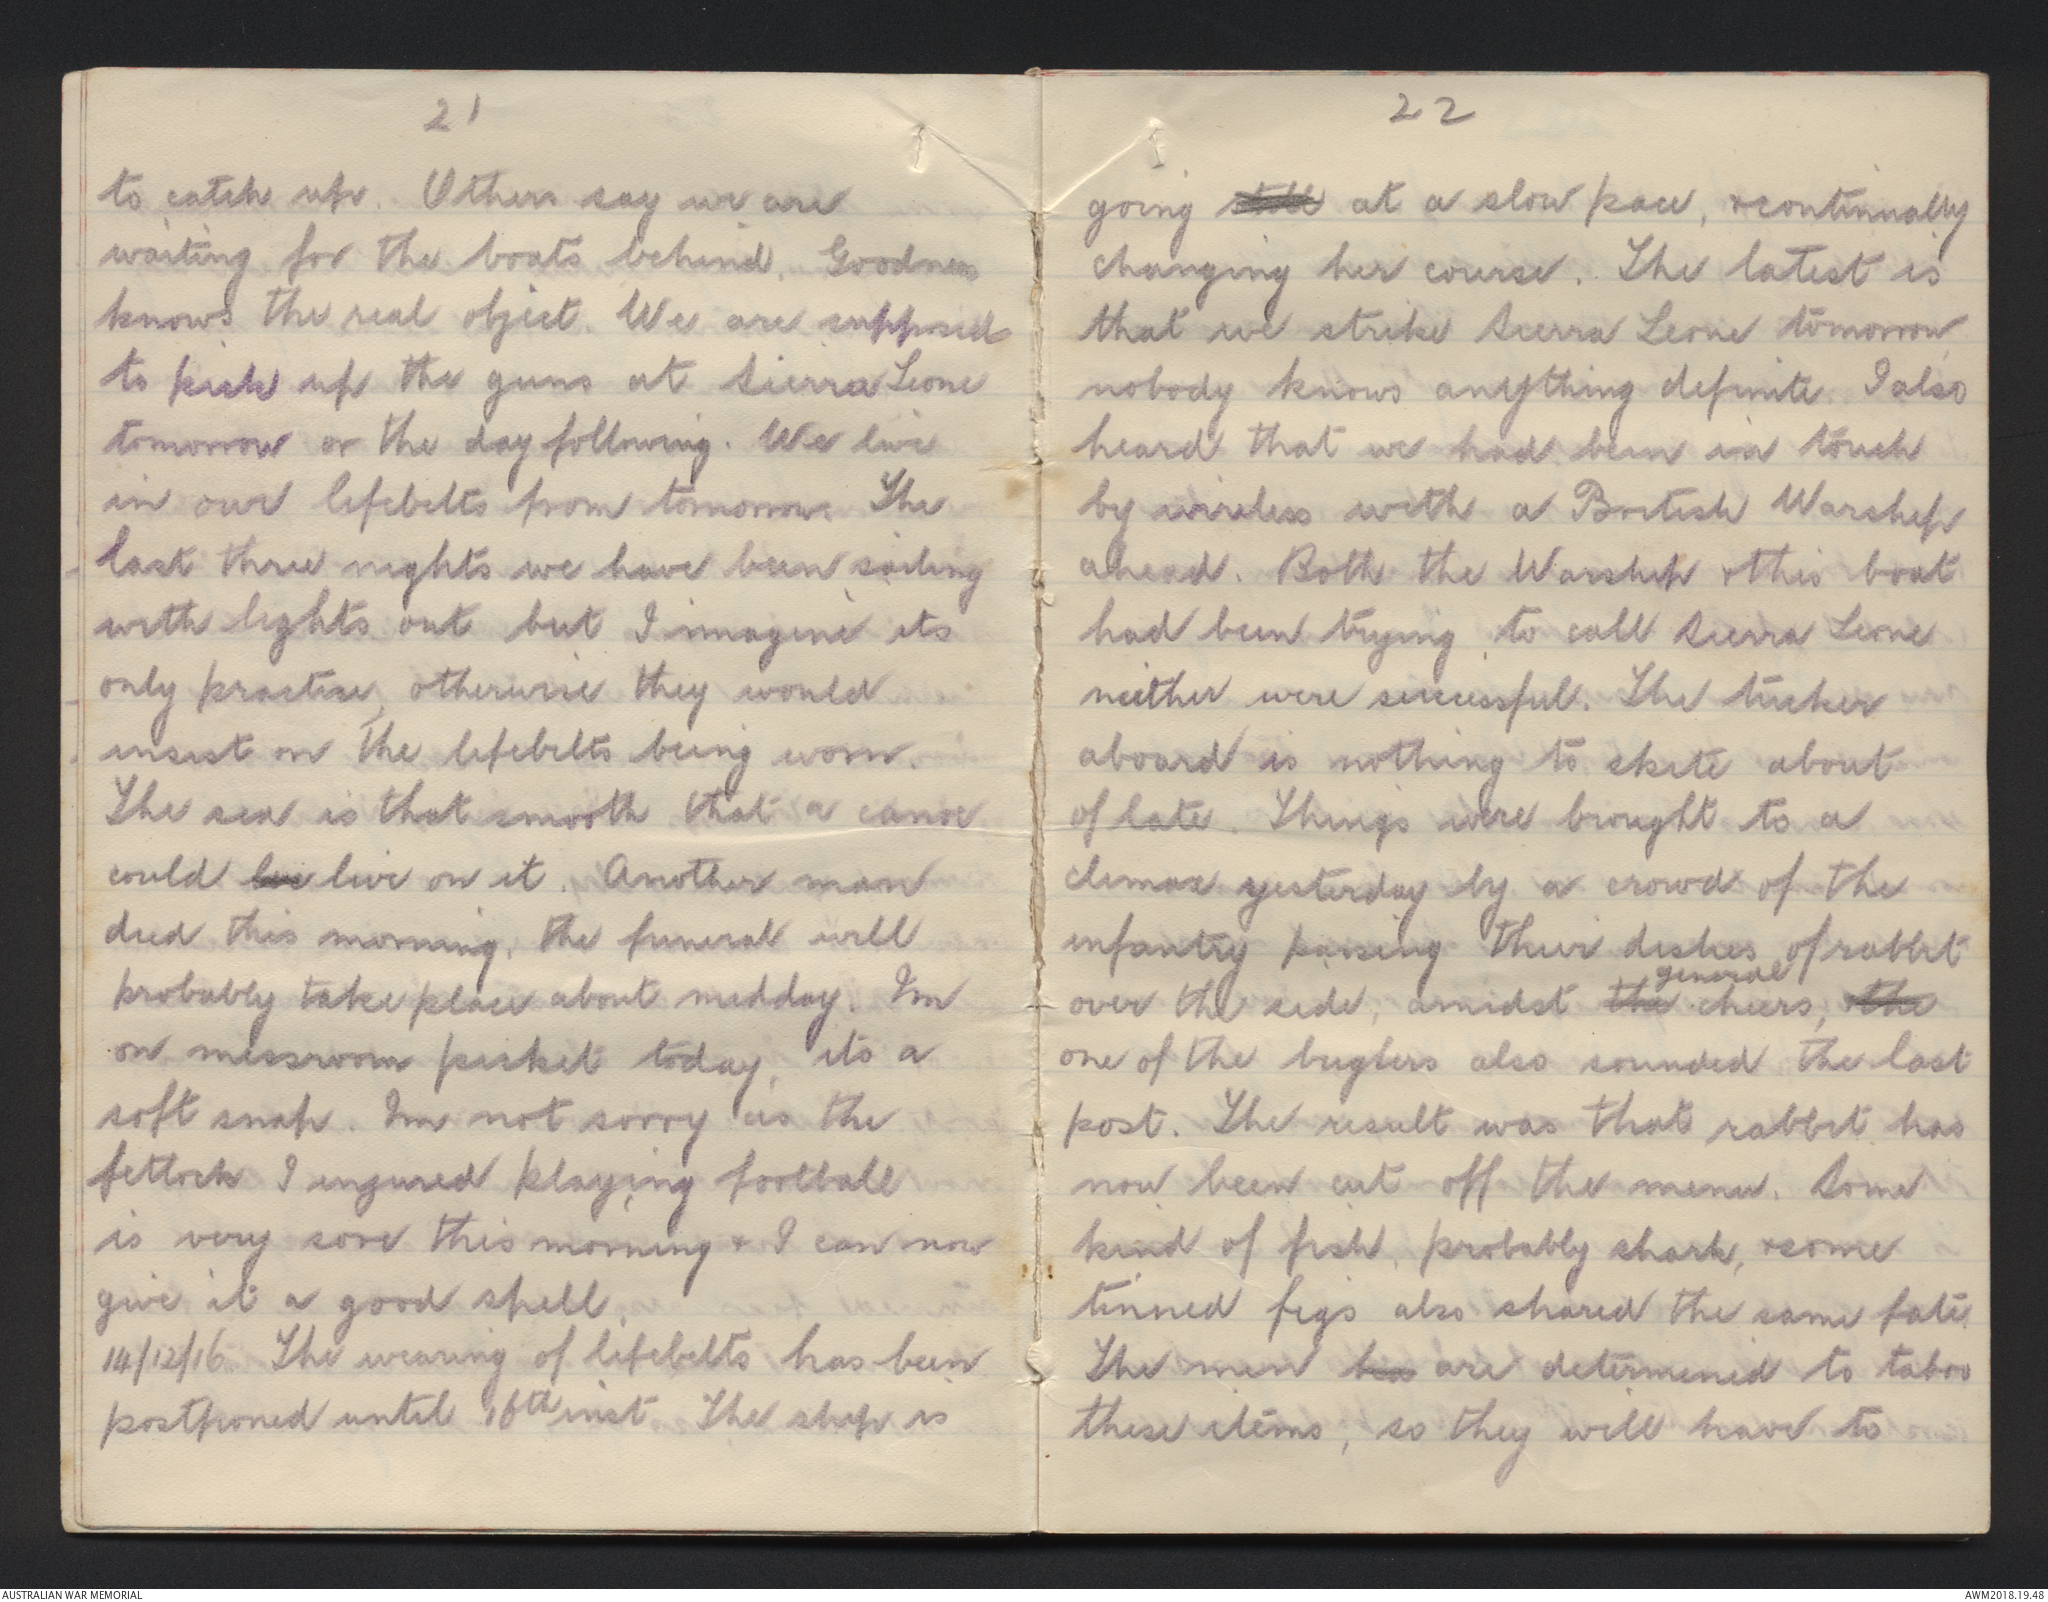 21
to catch up. Others say we are
waiting for the boats behind. Goodness
knows the real object. We are supposed
to pick up the guns at Sierra Leone
tomorrow or the day following. We live
in our lifebelts from tomorrow. The
last three nights we have been sailing
with lights out but I imagine its
only practise, otherwise they would
insist on the lifebelts being worn.
The sea is that smooth that a canoe
could live on it. Another man
died this morning, the funeral will
probably take place about midday. Im
on messroom picket today, its a
soft snap. Im not sorry as the
fetlock I injured playing football
is very sore this morning & I can now
give it a good spell.
14/12/16 The wearing of lifebelts has been
postponed until 16th inst. The ship is
22
going still at a slow pace, & continually
changing her course. The latest is
that we strike Sierra Leone tomorrow,
nobody knows anything definite. I also
heard that we had been in touch
by wireless with a British Warship
ahead. Both the Warship & this boat
had been trying to call Sierra Leone
neither were successful. The tucker
aboard is nothing to skite about
of late. Things were brought to a
climax yesterday by a crowd of the
infantry passing their dishes of rabbit
over the side, amidst the general cheers, & the
one of the buglers also sounded the last
post. The result was that rabbit has
now been cut off the menu. Some
kind of fish, probably shark, & some
tinned figs also shared the same fate.
The men has are determined to taboo
these items, so they will have to
AUSTRALIAN WAR MEMORIAL
AWM2018.19.48